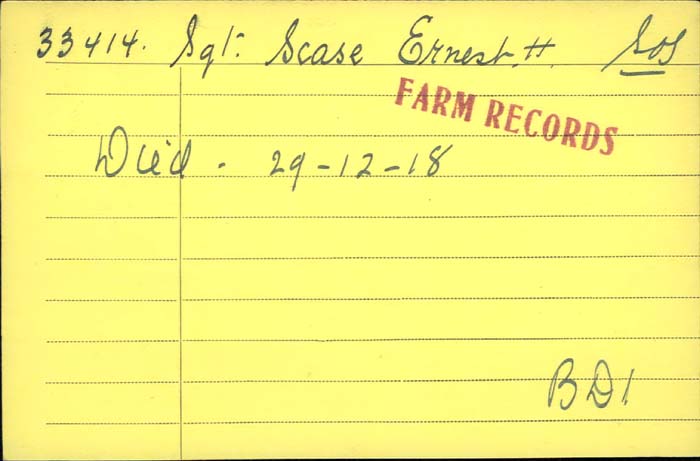 33414. Sgt. Scase Ernest. H. SOS
FARM RECORDS
Died - 29-12-18
BD1